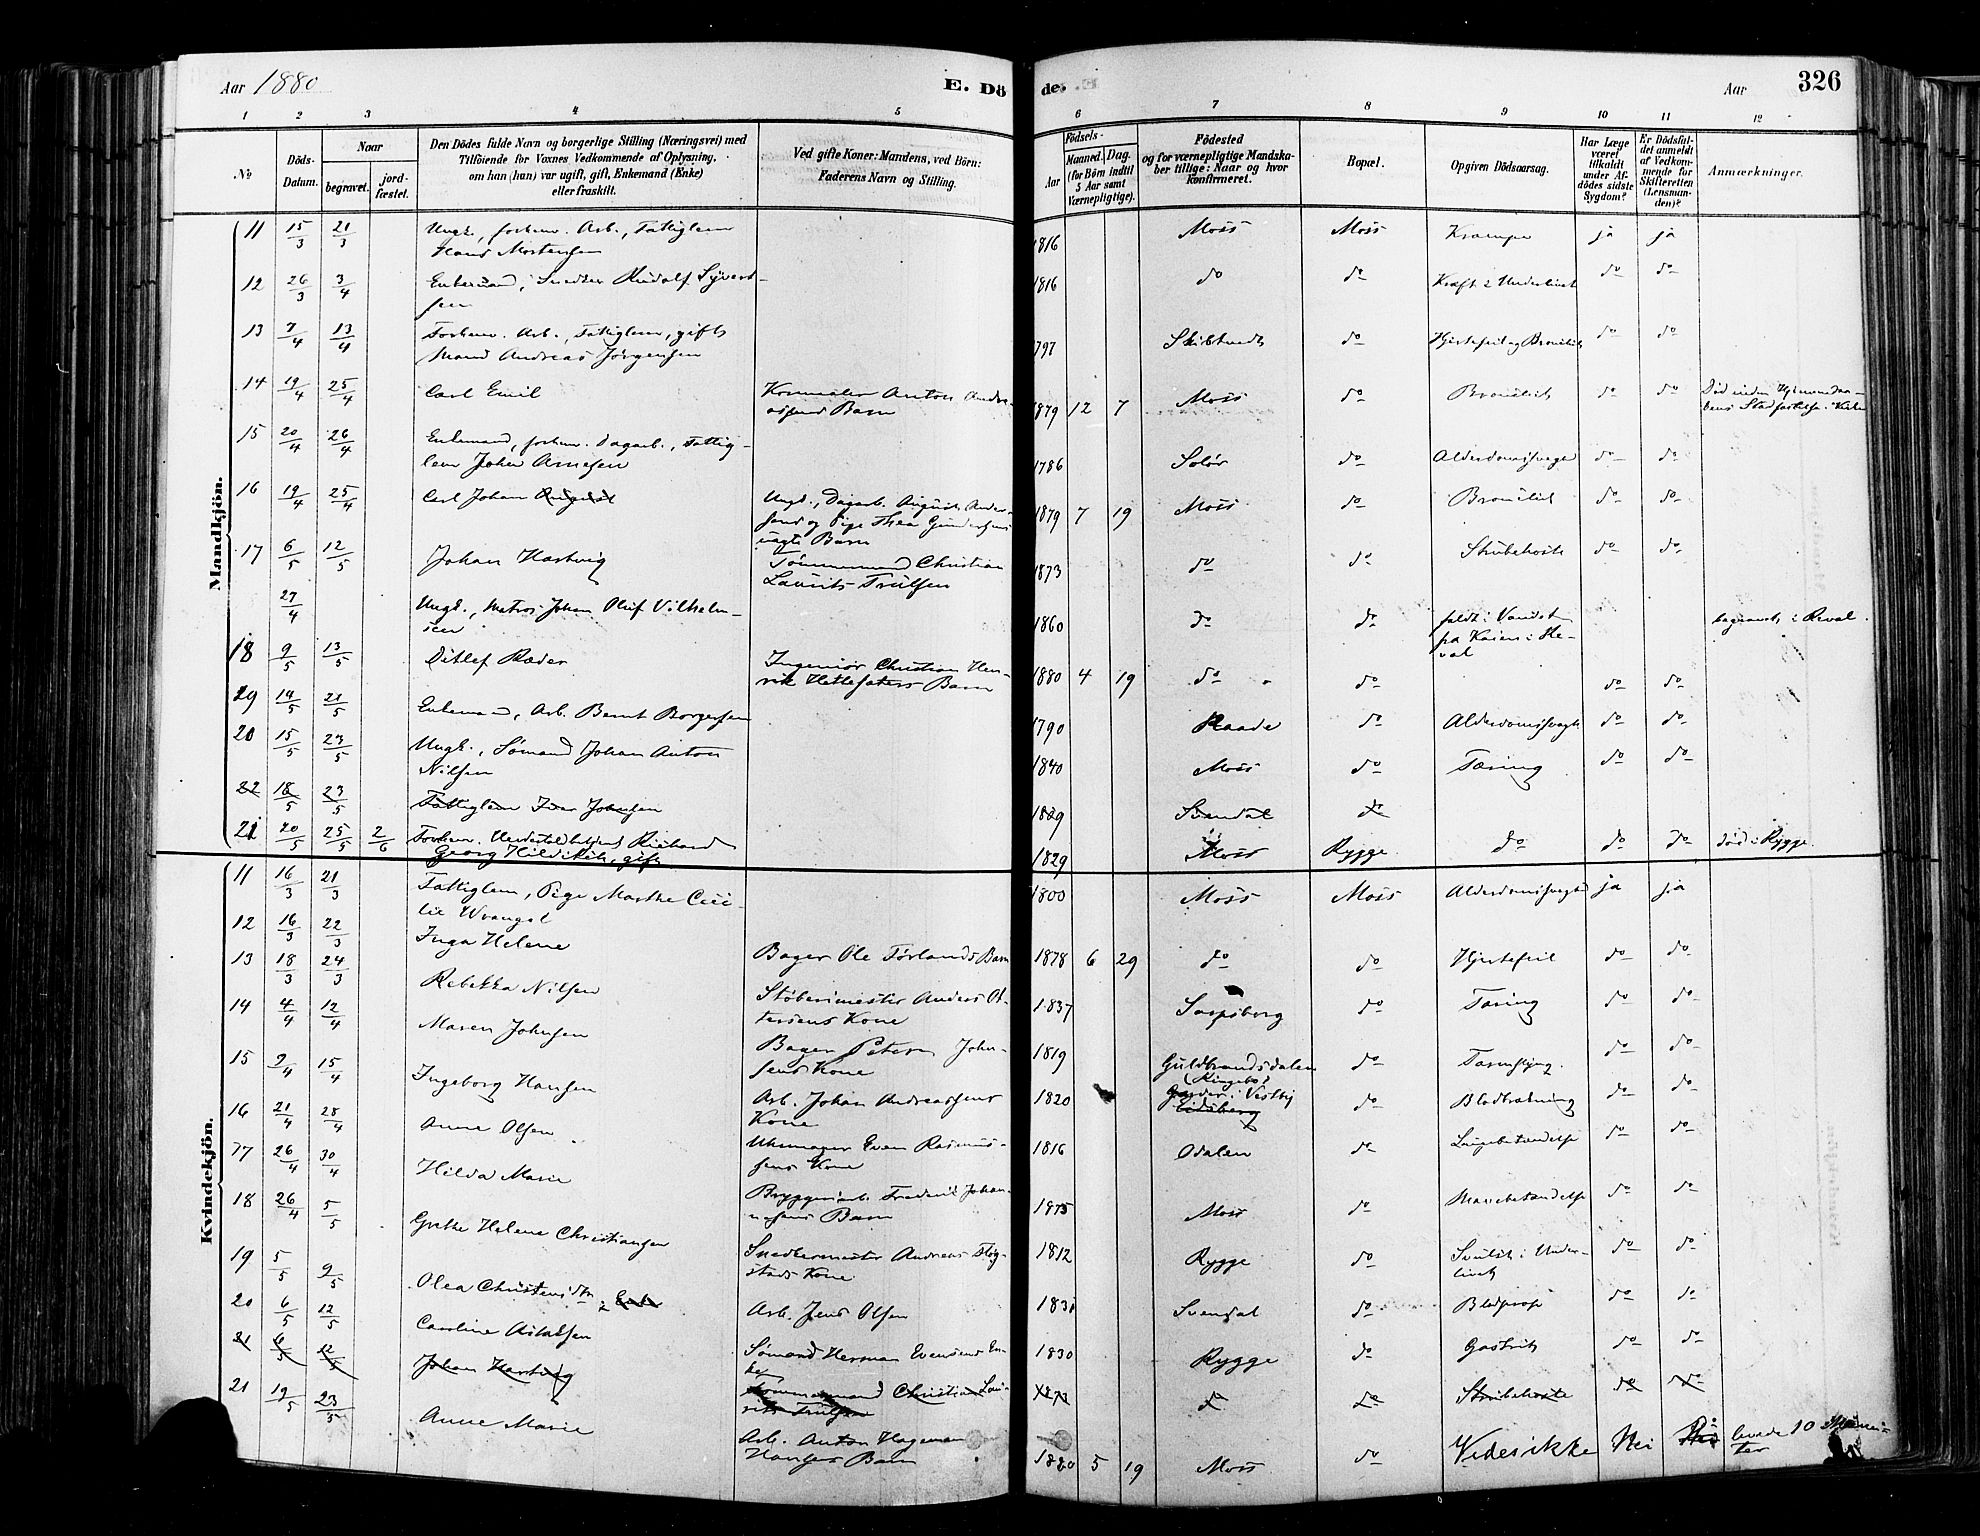 Aar 1880
E. Dö
de.
Aar
326
1 2 3 4 5 6 7 8 9 10 11 12
No
Döds-Datum.
Naar
begravet.
jord-fæstet.
Den Dödes fulde Navn og borgerlige Stilling (Næringsvei) med
Tilföiende for Voxnes Vedkommende af Oplysning,
om han (hun) var ugift, gift, Enkemand (Enke)
eller fraskilt.
Ved gifte Koner: Mandens, ved Börn:
Faderens Navn og Stilling.
Födsels-
Aar
Maaned. Dag.
(for Börn indtil
5 Aar samt
Værnepligtige).
Födested
og for værnepligtige Mandska-
ber tillige: Naar og hvor
konfirmeret.
Bopæl.
Opgiven Dödsaarsag.
Har Læge
været
tilkaldt
under Af-
dödes sidste
Sygdom?
Er Dödsfal-
det anmeldt
af Vedkom-
mende for
Skifteretten
(Lensman-
den)?
Anmærkninger.
Mandkjön.
11 15/3 21/3 Ungk., forhenv. Arb., Fattiglem
Hans Mortensen 1816 Moss Moss Krampe ja ja
12 26/3 3/4 Enkemand, Snedker Rudolf Syvert-
sen 1816 do do Kræft i Underlivet do do
13 7/4 13/4 Forhenv. Arb., Fattiglem, gift
Mand Andreas Jörgensen 1797 Skibtvedt do Hjertefeil og Bronkit do do
14 19/4 25/4 Carl Emil Kornmaler Anton Andre-
asens Barn 1879 12 7 Moss do Bronkit do do Död inden Hjemmedaa-
bens Stadfæstelse i Kirken
15 20/4 26/4 Enkemand, forhenv. Dagarb., Fattig-
lem Johan Arnesen 1786 Solör do Alderdomssvaghed do do
16 19/4 25/4 Carl Johan August Ungk., Dagarb. August Ander-
sens og Pige Thea Gundersens
uægte Barn 1879 7 19 Moss do Bronkit do do
17 6/5 12/5 Johan Hartvig Tömmermand Christian
Laurits Trulsen 1873 do do Strubehoste do do
27/4 Ungk., Matros Johan Oluf Vilhelm-
sen 1860 do do faldt i Vandet
fra Kaien i Re-
val begravet i Reval.
18 9/5 13/5 Ditlef Ræder Ingeniör Christian Hen-
rik Hettesaters Barn 1880 4 19 do do do do
29 14/5 21/5 Enkemand, Arb. Bernt Borgersen 1790 Raade do Alderdomssvaghed do do
20 15/5 23/5 Ungk., Sömand Johan Anton
Nilsen 1840 Moss do Tæring do do
22 18/5 23/5 Fattiglem Iver Johnsen 1829 Svendal do
21 20/5 25/5 2/6 Forhenv. Undertoldbetjent Richard
Georg Hildisch, gift 1829 Moss Rygge do do do död i Rygge.
Kvindekjön.
11 16/3 21/3 Fattiglem, Pige Marthe Ceci-
lie Wrangel 1800 Moss Moss Alderdomssvaghed ja ja
12 16/3 22/3 Inga Helene Bager Ole Förlands Barn 1878 6 29 do do Hjertefeil do do
13 18/3 24/3 Rebekka Nilsen Stöberimester Anders Ot-
tersens Kone 1837 Sarpsborg do Tæring do do
14 4/4 12/4 Maren Johnsen Bager Petter John-
sens Kone 1819 Guldbrandsdalen
(Ringebo) do Tarmslyng. do do
15 9/4 15/4 Ingeborg Hansen Arb. Johan Andreassens
Kone 1820 Garder i Vestby
Eidsberg do Blodbrækning do do
16 21/4 28/4 Anne Olsen Uhrmager Even Rasmus-
sens Kone 1816 Odalen do Lungebetændelse do do
17 26/4 30/4 Hilda Marie Bryggeriarb. Frederik Johan-
nesens Barn 1875 Moss do Mavebetændelse do do
18 26/4 5/5 Grethe Helene Christiansen Snedkermester Andreas Flög-
stads Kone 1812 Rygge do Svulst i Under-
livet do do
19 5/5 9/5 Olea Christensdtr Enke Arb. Jens Olsen 183 Svendal do Blodprop do do
20 6/5 12/5 Caroline Aslaksen Sömand Herman Evensens En-
ke 1830 Rygge do Gastrit do do
21 6/5 12/5 Johan Hartvig Tömmermand Christian Lau-
rits Trulsen 1873 do do Strubehoste do do
21 19/5 23/5 Anne Marie Arb. Anton Hageman
Hansens Barn 1880 5 19 Moss do Vedesikke Nei Nei levede 10 Minu-
ter